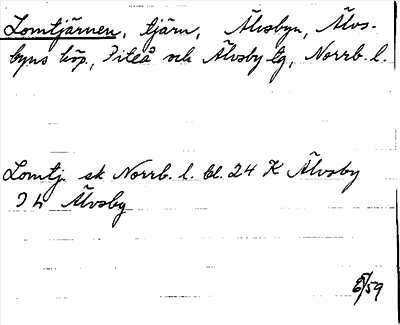 Lomtjärnen, tjärn, Älvsbyn, Älvs-
byns köp, Piteå och Älvsby tg, Norrb. l.
Lomtj. sk Norrb. l. bl. 24 K Älvsby
Älvsby
/59